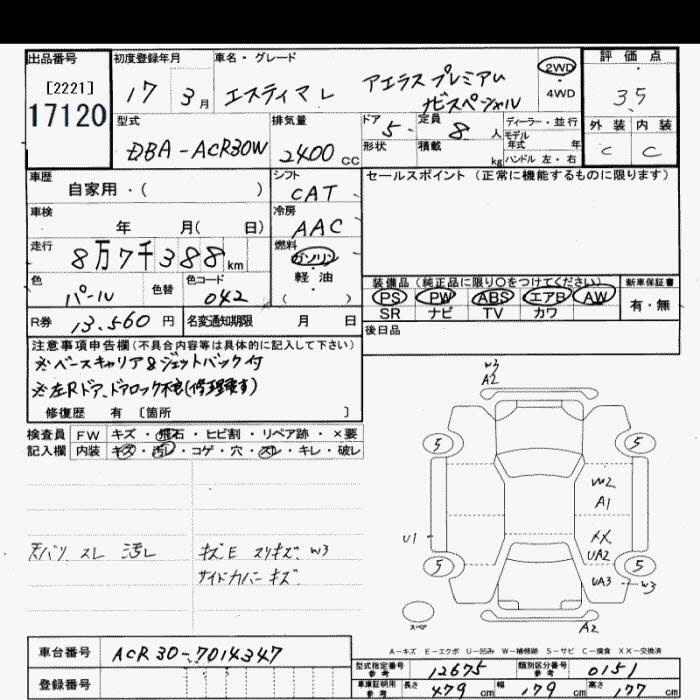 出品番号
[2221]
17120
初度登録年月
17 3月
車名・グレード
エスティマL アエラスプレミアム
ナビスペシャル
2WD
4WD
評価点
3.5
外装 内装
C C
型式
DBA-ACR30W
排気量
2400 CC
ドア 5
形状
定員 8 人
積載 kg
ディーラー・並行
モデル年式 年
ハンドル 左・右
車歴
自家用・( )
シフト
CAT
車検
年 月( 日)
冷房
AAC
走行
8万7千388km
燃料
ガソリン
軽油
( )
色
パール
色替
色コード
042
R券 13,560 円
名変通知期限 月 日
セールスポイント(正常に機能するものに限ります)
装備品(純正品に限り○をつけてください)
PS PW ABS エアB AW
SR ナビ TV カワ
新車保証書
有・無
後日品
注意事項申告欄(不具合内容等は具体的に記入して下さい)
※ベースキャリア&ジェットバック付
※左Rドア、ドアロック不良(修理要す)
修復歴 有 〔箇所 〕
検査員 FW キズ・飛石・ヒビ割・リペア跡・×要
記入欄 内装 キズ・汚レ・コゲ・穴・スレ・キレ・破レ
天バリ スレ 汚レ
キズE スリキズ W3
サイドカバー キズ
W3
A2
5 5
W2
A1
U1
XX
UA2
5 5
UA3 W3
スペア
A2
A-キズ E-エクボ U-凹み W-補修跡 S-サビ C-腐食 XX-交換済
車台番号 ACR30-7014347
登録番号
型式指定番号 参考 12675
類別区分番号 参考 0151
車庫証明用 参考 長さ 479 cm 幅 179 cm 高さ 177 cm